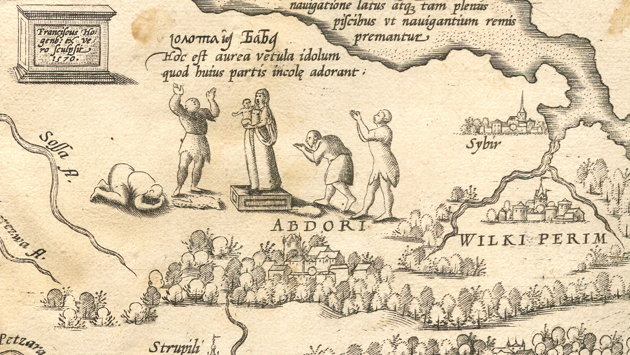 nauigatione latus atqȝ tam plenus
piscibus vt nauigantium remis
premantur
Franciscus Ho
genb: ex ve
ro sculpsit
1570.
золотаѧ Баба
Hoc est aurea vetula idolum
quod huius partis incolę adorant:
Sossa fl.
Sybir
ABDORI
WILKI PERIM
fl.
Petzara
Strupili